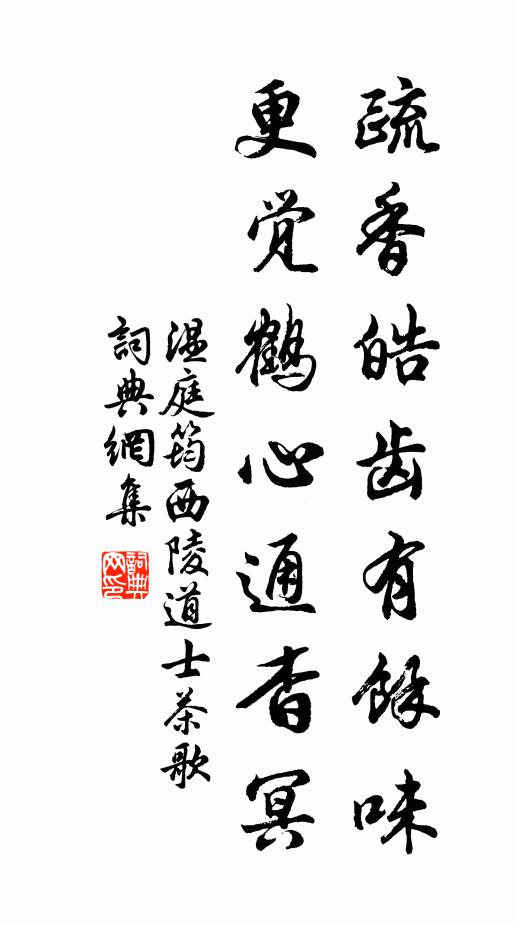 疏香皓齿有餘味
更觉鶴心通杳冥
温庭筠西陵道士茶歌
詞典網集
詞典
网印